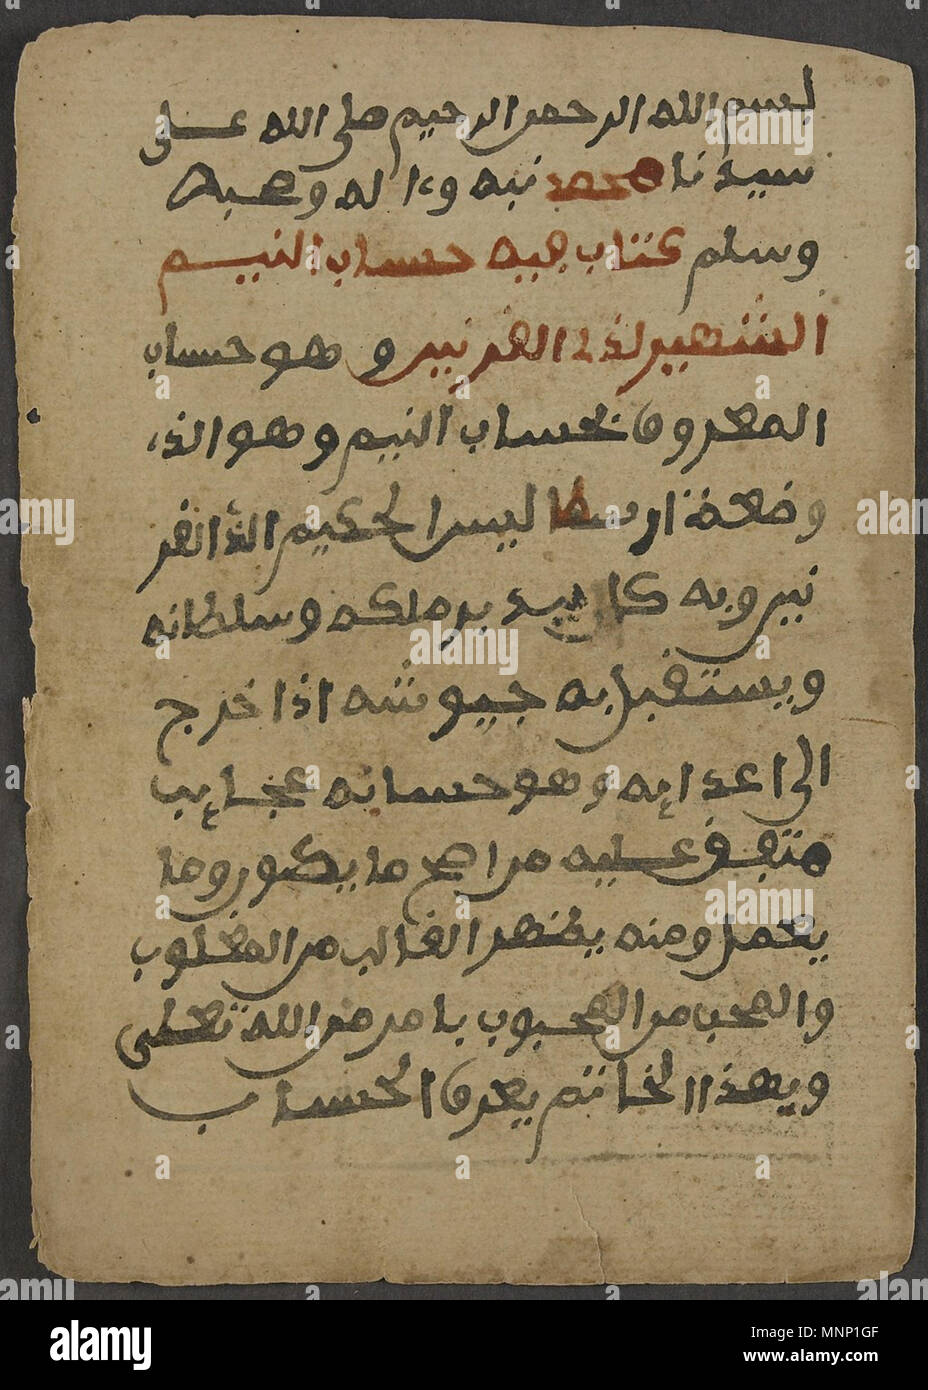 بسم الله الرحمن الرحيم صلى الله على
سيدنا محمد نبيه وءاله وصحبه
وسلم كتاب فيه حساب النيم
الشهير لذي القرنين وهو حساب
المعروف بحساب النيم وهو الذي
وضعه ارسطاليس الحكيم الذي القر
نين وبه كان يدبر ملكه وسلطانه
ويستقبل به جيوشه اذا خرج
الى اعدايه وهو حسابه عجايب
متفق عليه من اصح ما يكون وما
يعمل ومنه يظهر الغالب من المغلوب
والمحب من المحبوب بامر من الله تعلى
وبهذا الخاتم يعرف الحساب
alamy
Image ID: MNP1GF
www.alamy.com